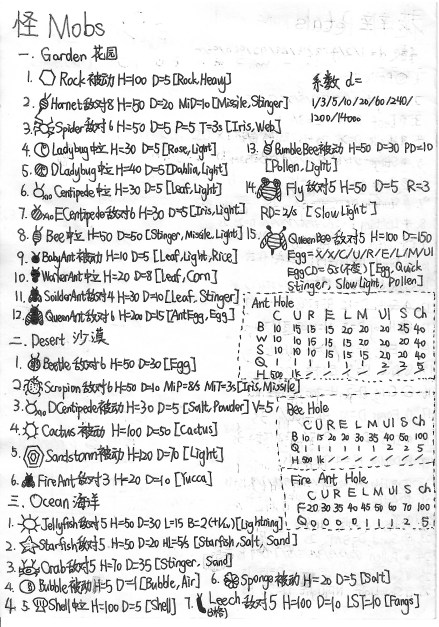 怪 Mobs
一. Garden 花园
1. Rock 被动 H=100 D=5 [Rock, Heavy]
2. Hornet 敌对8 H=50 D=20 MiD=10 [Missile, Stinger]
3. Spider 敌对6 H=50 D=5 P=5 T=3s [Iris, Web]
4. Ladybug 中立 H=30 D=5 [Rose, Light]
5. DLadybug 中立 H=40 D=5 [Dahlia, Light]
6. Centipede 中立 H=30 D=5 [Leaf, Light]
7. ECentipede 敌对6 H=30 D=5 [Iris, Light]
8. Bee 中立 H=50 D=50 [Stinger, Missile, Light]
9. BabyAnt 被动 H=10 D=5 [Leaf, Light, Rice]
10. WorkerAnt 中立 H=20 D=8 [Leaf, Corn]
11. SoilderAnt 敌对4 H=30 D=10 [Leaf, Stinger]
12. QueenAnt 敌对6 H=200 D=15 [AntEgg, Egg]
系数 d=
1/3/5/10/20/60/240/
1200/14000
13. BumbleBee 被动 H=50 D=30 PD=10
[Pollen, Light]
14. Fly 敌对5 H=50 D=5 R=3
RD=2/s [Slow Light]
15. QueenBee 敌对5 H=100 D=150
Egg=X/X/C/U/R/E/L/M/Ul
EggCD=6s(不变) [Egg, Quick
Stinger, Slow Light, Pollen]
Ant Hole
C U R E L M Ul S Ch
B 10 15 15 15 20 20 20 25 40
W 10 10 15 15 15 20 20 20 40
S 10 10 15 15 15 20 20 20 40
Q 1 1 1 1 1 2 2 2 5
H 500 1k
二. Desert 沙漠
1. Beetle 敌对6 H=50 D=30 [Egg]
2. Scropion 敌对6 H=50 D=10 MiP=8/s MiT=3s [Iris, Missile]
3. DCentipede 被动 H=30 D=5 [Salt, Powder] V=5
4. Cactus 被动 H=100 D=50 [Cactus]
5. Sandstorm 被动 H=120 D=70 [Light]
6. FireAnt 敌对3 H=20 D=10 [Yucca]
Bee Hole
C U R E L M Ul S Ch
B 10 15 20 20 30 35 40 50 100
Q 1 1 1 1 1 2 2 5
H 500 1k
Fire Ant Hole
C U R E L M Ul S Ch
F 20 30 35 40 45 50 60 70 100
Q 0 0 0 0 1 1 1 2 5
三. Ocean 海洋
1. Jellyfish 敌对5 H=50 D=30 L=15 [Lightning]
2. Starfish 敌对5 H=50 D=20 HL=5/s [Starfish, Salt, Sand]
3. Crab 敌对5 H=70 D=35 [Stinger, Sand]
4. Bubble 被动 H=5 D=1 [Bubble, Air]
6. Sponge 被动 H=20 D=5 [Salt]
5. Shell 中立 H=100 D=5 [Shell]
7. Leech 敌对5 H=100 D=10 LST=10 [Fangs]